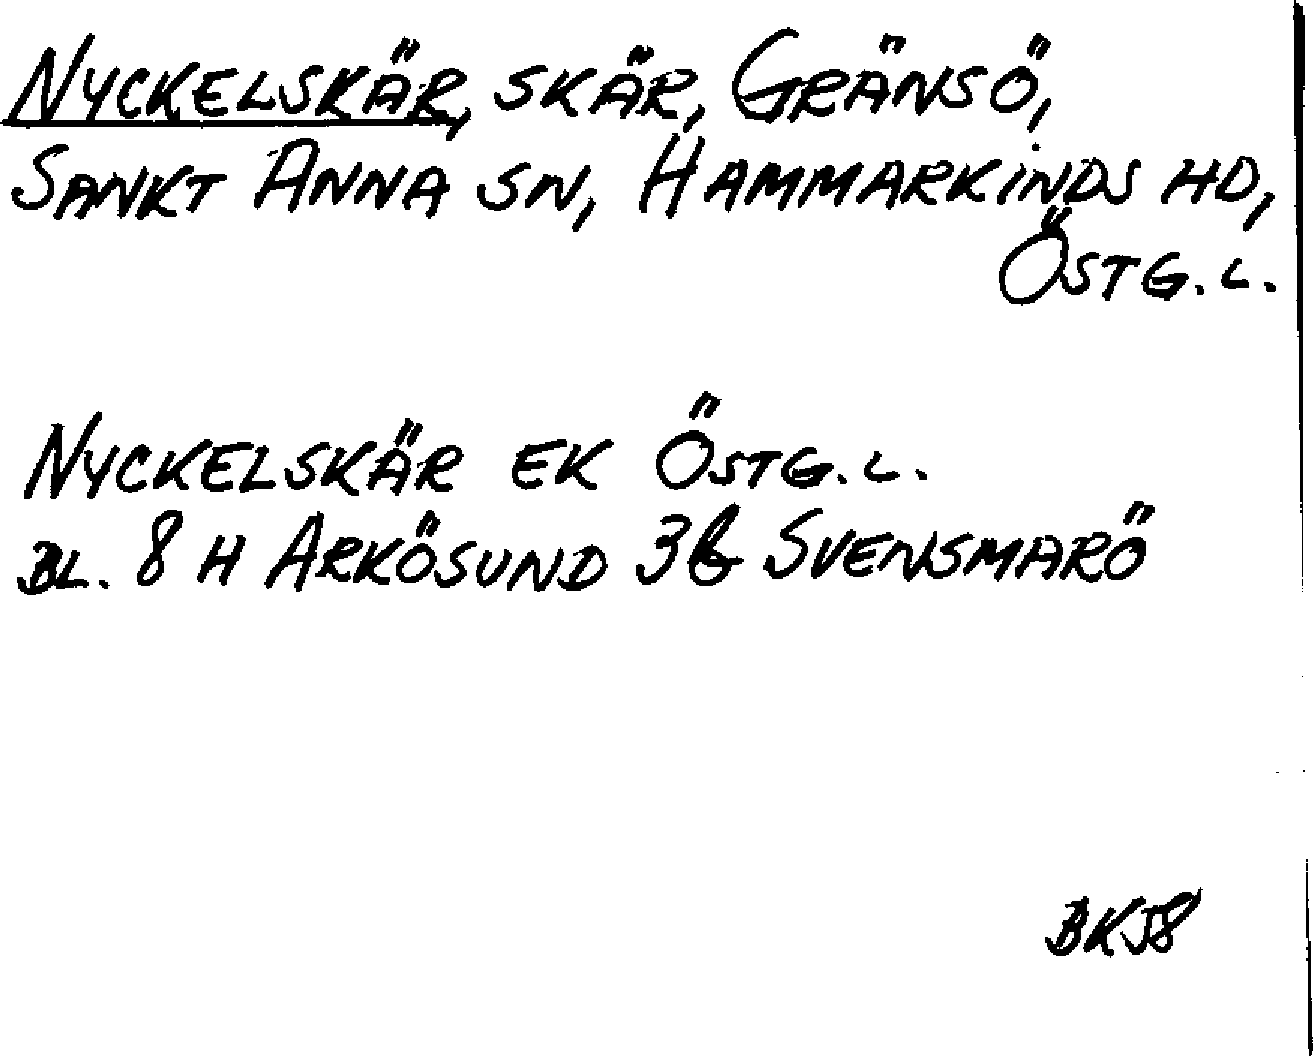 NYCKELSKÄR, SKÄR, GRÄNSÖ,
SANKT ANNA SN, HAMMARKINDS HD,
ÖSTG. L.
NYCKELSKÄR EK ÖSTG. L.
BL. 8 H ARKÖSUND 3b SVENSMARÖ
BKJ8